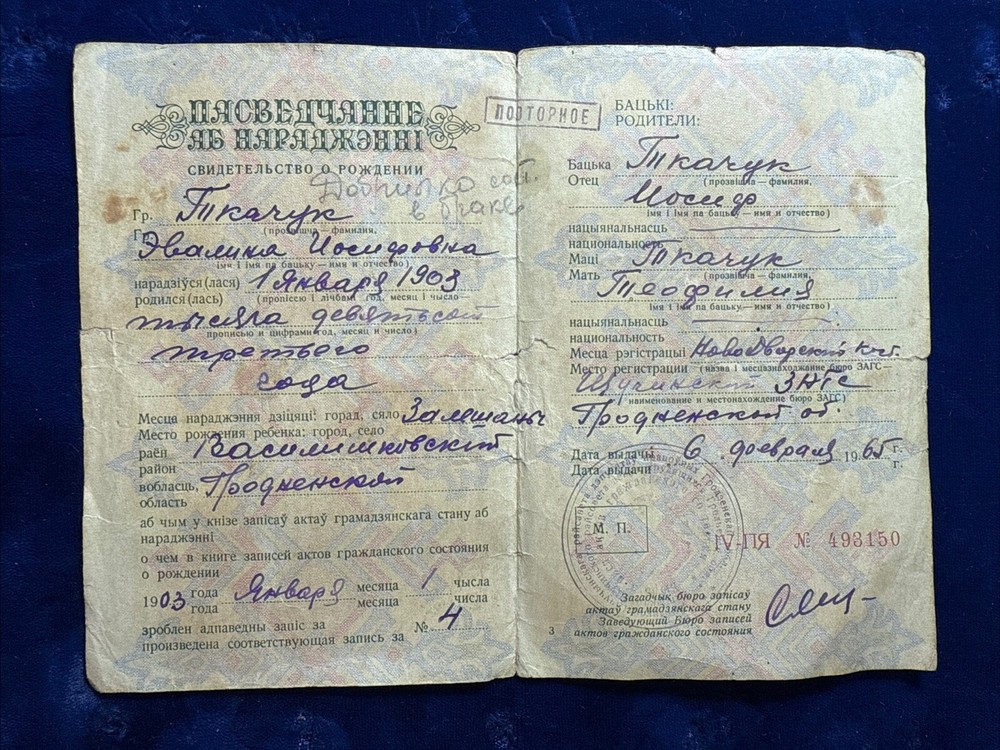 ПАСВЕДЧАННЕ
АБ НАРАДЖЭННІ
СВИДЕТЕЛЬСТВО О РОЖДЕНИИ
в браке
Гр. Ткачук
Гр.
(прозвішча — фамилия,
Эвалина Иосифовна
імя і імя па бацьку — имя и отчество)
нарадзіўся (лася) 1 Января 1903
родился (лась) (пропіссю і лічбамі год, месяц і чысло —
тысяча девятьсот
прописью и цифрами год, месяц и число)
третьего
года
Месца нараджэння дзіцяці: горад, сяло Замшаны
Место рождения ребенка: город, село
раён Василишковский
район
вобласць, Гродненской
область
аб чым у кнізе запісаў актаў грамадзянскага стану аб
нараджэнні
о чем в книге записей актов гражданского состояния
о рождении
1903 года Января месяца 1 чысла
года месяца числа
зроблен адпаведны запіс за № 4
произведена соответствующая запись за
ПОВТОРНОЕ
БАЦЬКІ:
РОДИТЕЛИ:
Бацька Ткачук
Отец (прозвішча — фамилия,
Иосиф
імя і імя па бацьку — имя и отчество)
нацыянальнасць
национальность
Маці Ткачук
Мать (прозвішча — фамилия,
Теофилия
імя і імя па бацьку — имя и отчество)
нацыянальнасць
национальность
Месца рэгістрацыі Новодворский кост.
Место регистрации (назва і месцазнаходжанне бюро ЗАГС —
Щучинский ЗАГС
наименование и местонахождение бюро ЗАГС)
Гродненской об.
Дата выдачы 6 февраля 1965 г.
Дата выдачи г.
М. П.
IV-ПЯ № 493150
Загадчык бюро запісаў
актаў грамадзянскага стану
Заведующий Бюро записей
актов гражданского состояния
3